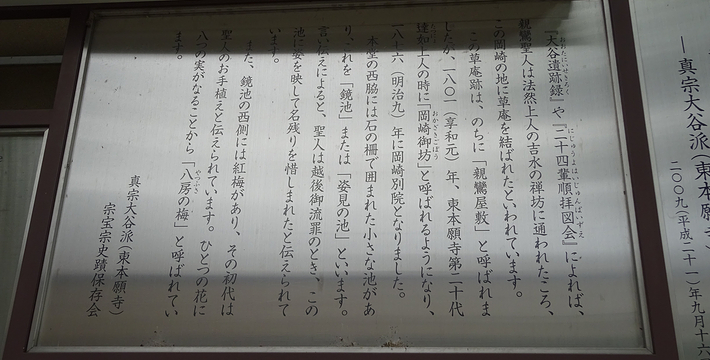 『大谷遺跡録』や『二十四輩順拝図会』によれば、
親鸞聖人は法然上人の吉水の禅坊に通われたころ、
この岡崎の地に草庵を結ばれたといわれています。
この草庵跡は、のちに「親鸞屋敷」と呼ばれま
したが、一八〇一（享和元）年、東本願寺第二十代
達如上人の時に「岡崎御坊」と呼ばれるようになり、
一八七六（明治九）年に岡崎別院となりました。
本堂の西脇には石の柵で囲まれた小さな池があ
り、これを「鏡池」または「姿見の池」といいます。
言い伝えによると、聖人は越後御流罪のとき、この
池に姿を映して名残りを惜しまれたと伝えられて
います。
また、鏡池の西側には紅梅があり、その初代は
聖人のお手植えと伝えられています。ひとつの花に
八つの実がなることから「八房の梅」と呼ばれてい
ます。
真宗大谷派（東本願寺）
宗宝宗史蹟保存会
―真宗大谷派（東本願寺）
二〇〇九（平成二十一）年九月十六